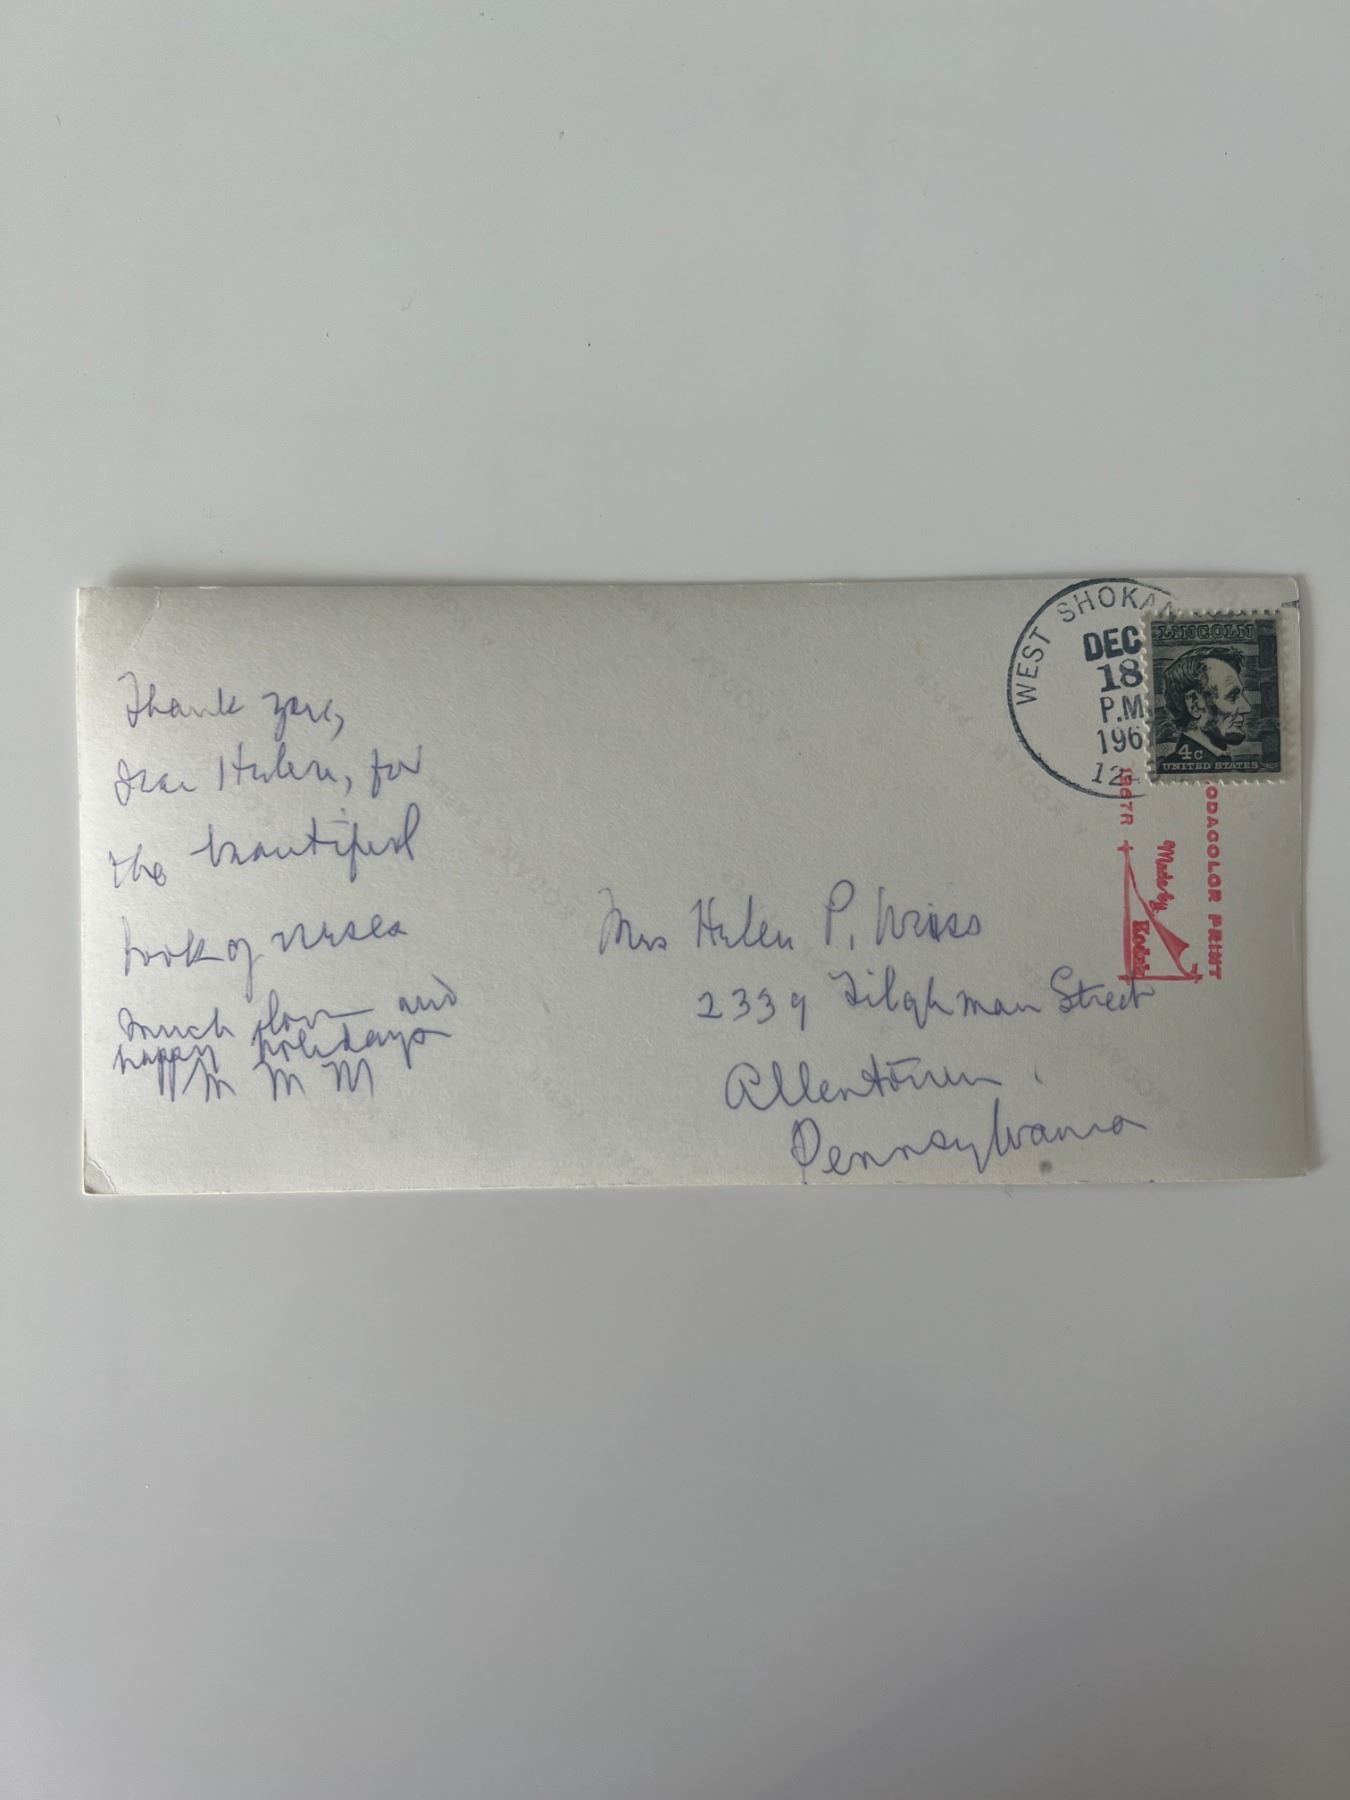 Thank you,
Dear Helen, for
the beautiful
book of verses
Much love and
happy holidays
M M M
WEST SHOKAN
DEC
18
P.M
196
12
LINCOLN
4c
UNITED STATES
KODACOLOR PRINT
Made by
Kodak
Mrs Helen P. Weiss
2339 Tilghman Street
Allentown
Pennsylvania